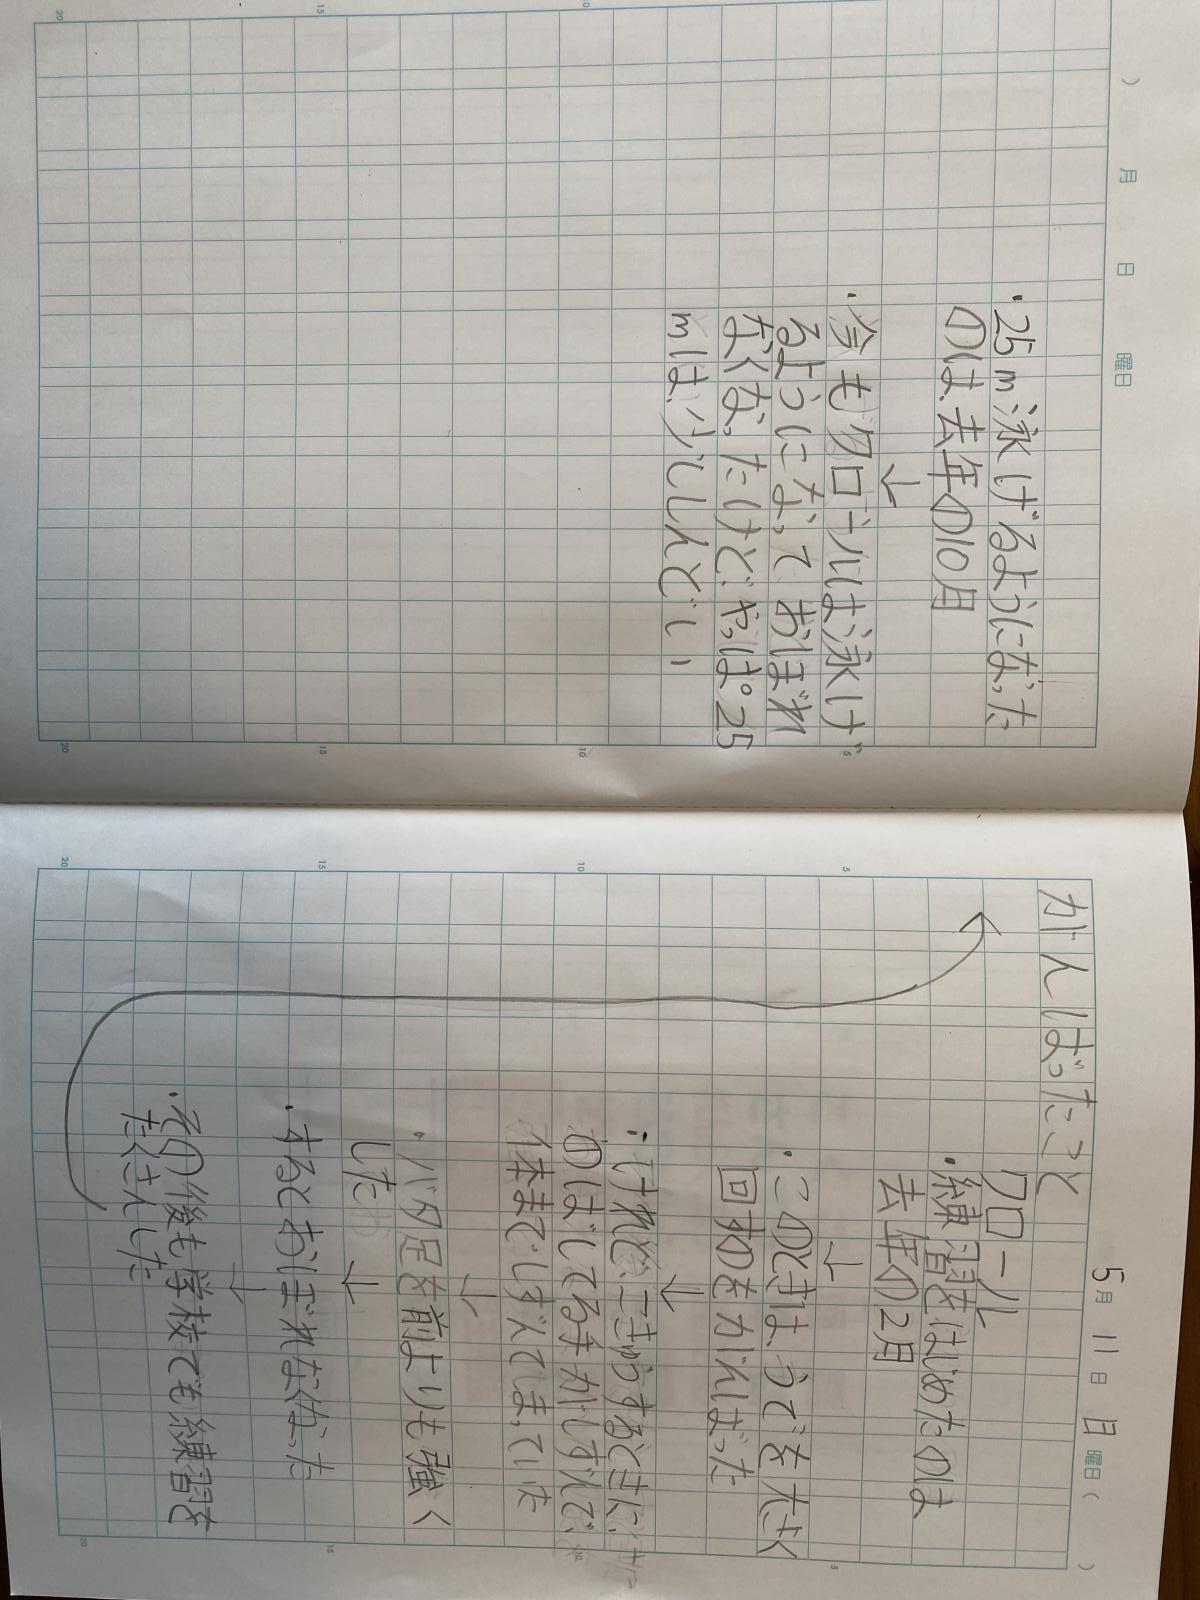 5月11日 日曜日( )
がんばったこと
クロール
・練習をはじめたのは
去年の2月
↓
・このときはうでを大きく
回すのをがんばった
↓
・けれど、こきゅうするときに、
のばしてる手がしずんで、
体まてしずんでしまっていた
↓
・バタ足を前よりも強く
した
↓
・するとおぼれなくなった
↓
・その後も学校でも練習を
たくさんした
月 日 曜日( )
・25m泳げるようになった
のは去年の10月
↓
・今もクロールは泳げ
るようになっておぼれ
なくなったけどやっぱ25
mは少ししんどい
5
10
15
20